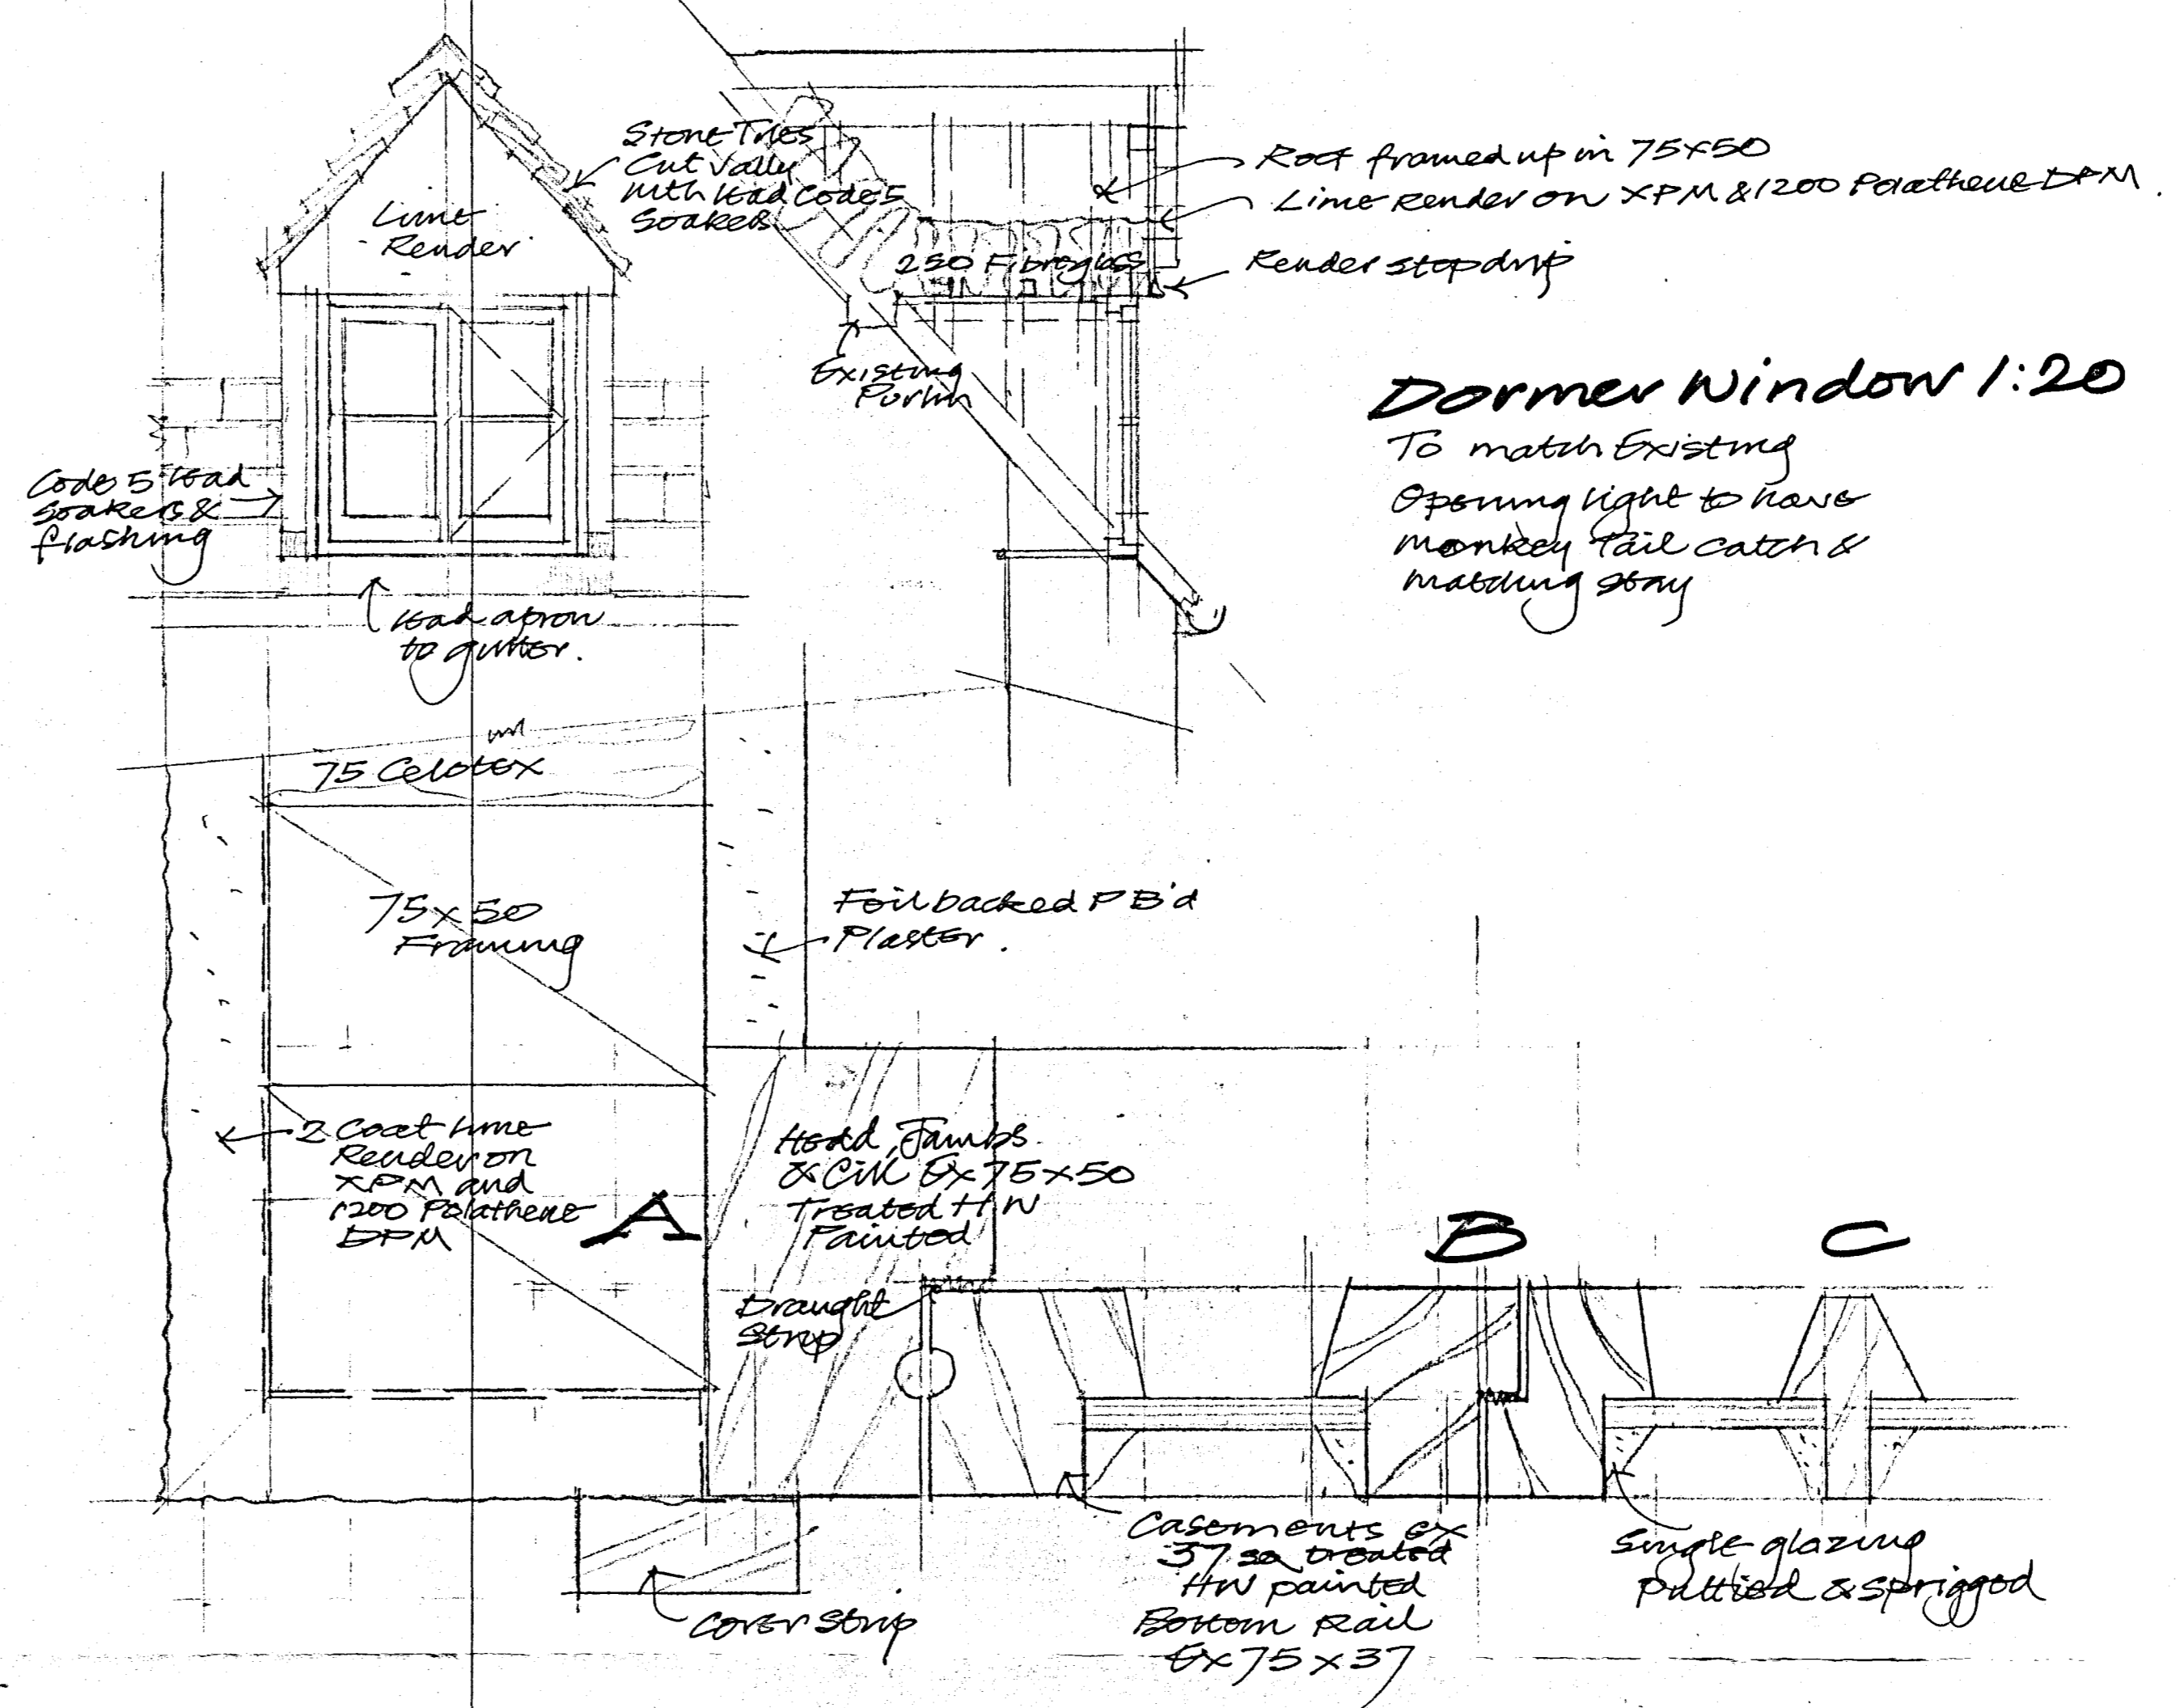 Stone Tiles
Cut Vally
with Lead Code 5
Soakers
Lime
Render
250 Fibreglass
Existing
Purlin
Roof framed up in 75x50
Lime Render on XPM & 1200 Polathene DPM.
Render stop drip
Dormer Window 1:20
To match Existing
Opening light to have
monkey Tail catch &
matching stay
Code 5 Lead
soakers &
flashing
Lead apron
to gutter.
75 Celotex
75x50
Framing
Foil backed PB'd
Plaster.
2 Coat Lime
Render on
XPM and
1200 Polathene
DPM
A
Head, Jambs
& Cill Ex 75x50
Treated HW
Painted
Draught
Strip
B
C
Cover Strip
Casements ex
37 sq treated
HW painted
Bottom Rail
Ex 75x37
Single glazing
Puttied & sprigged